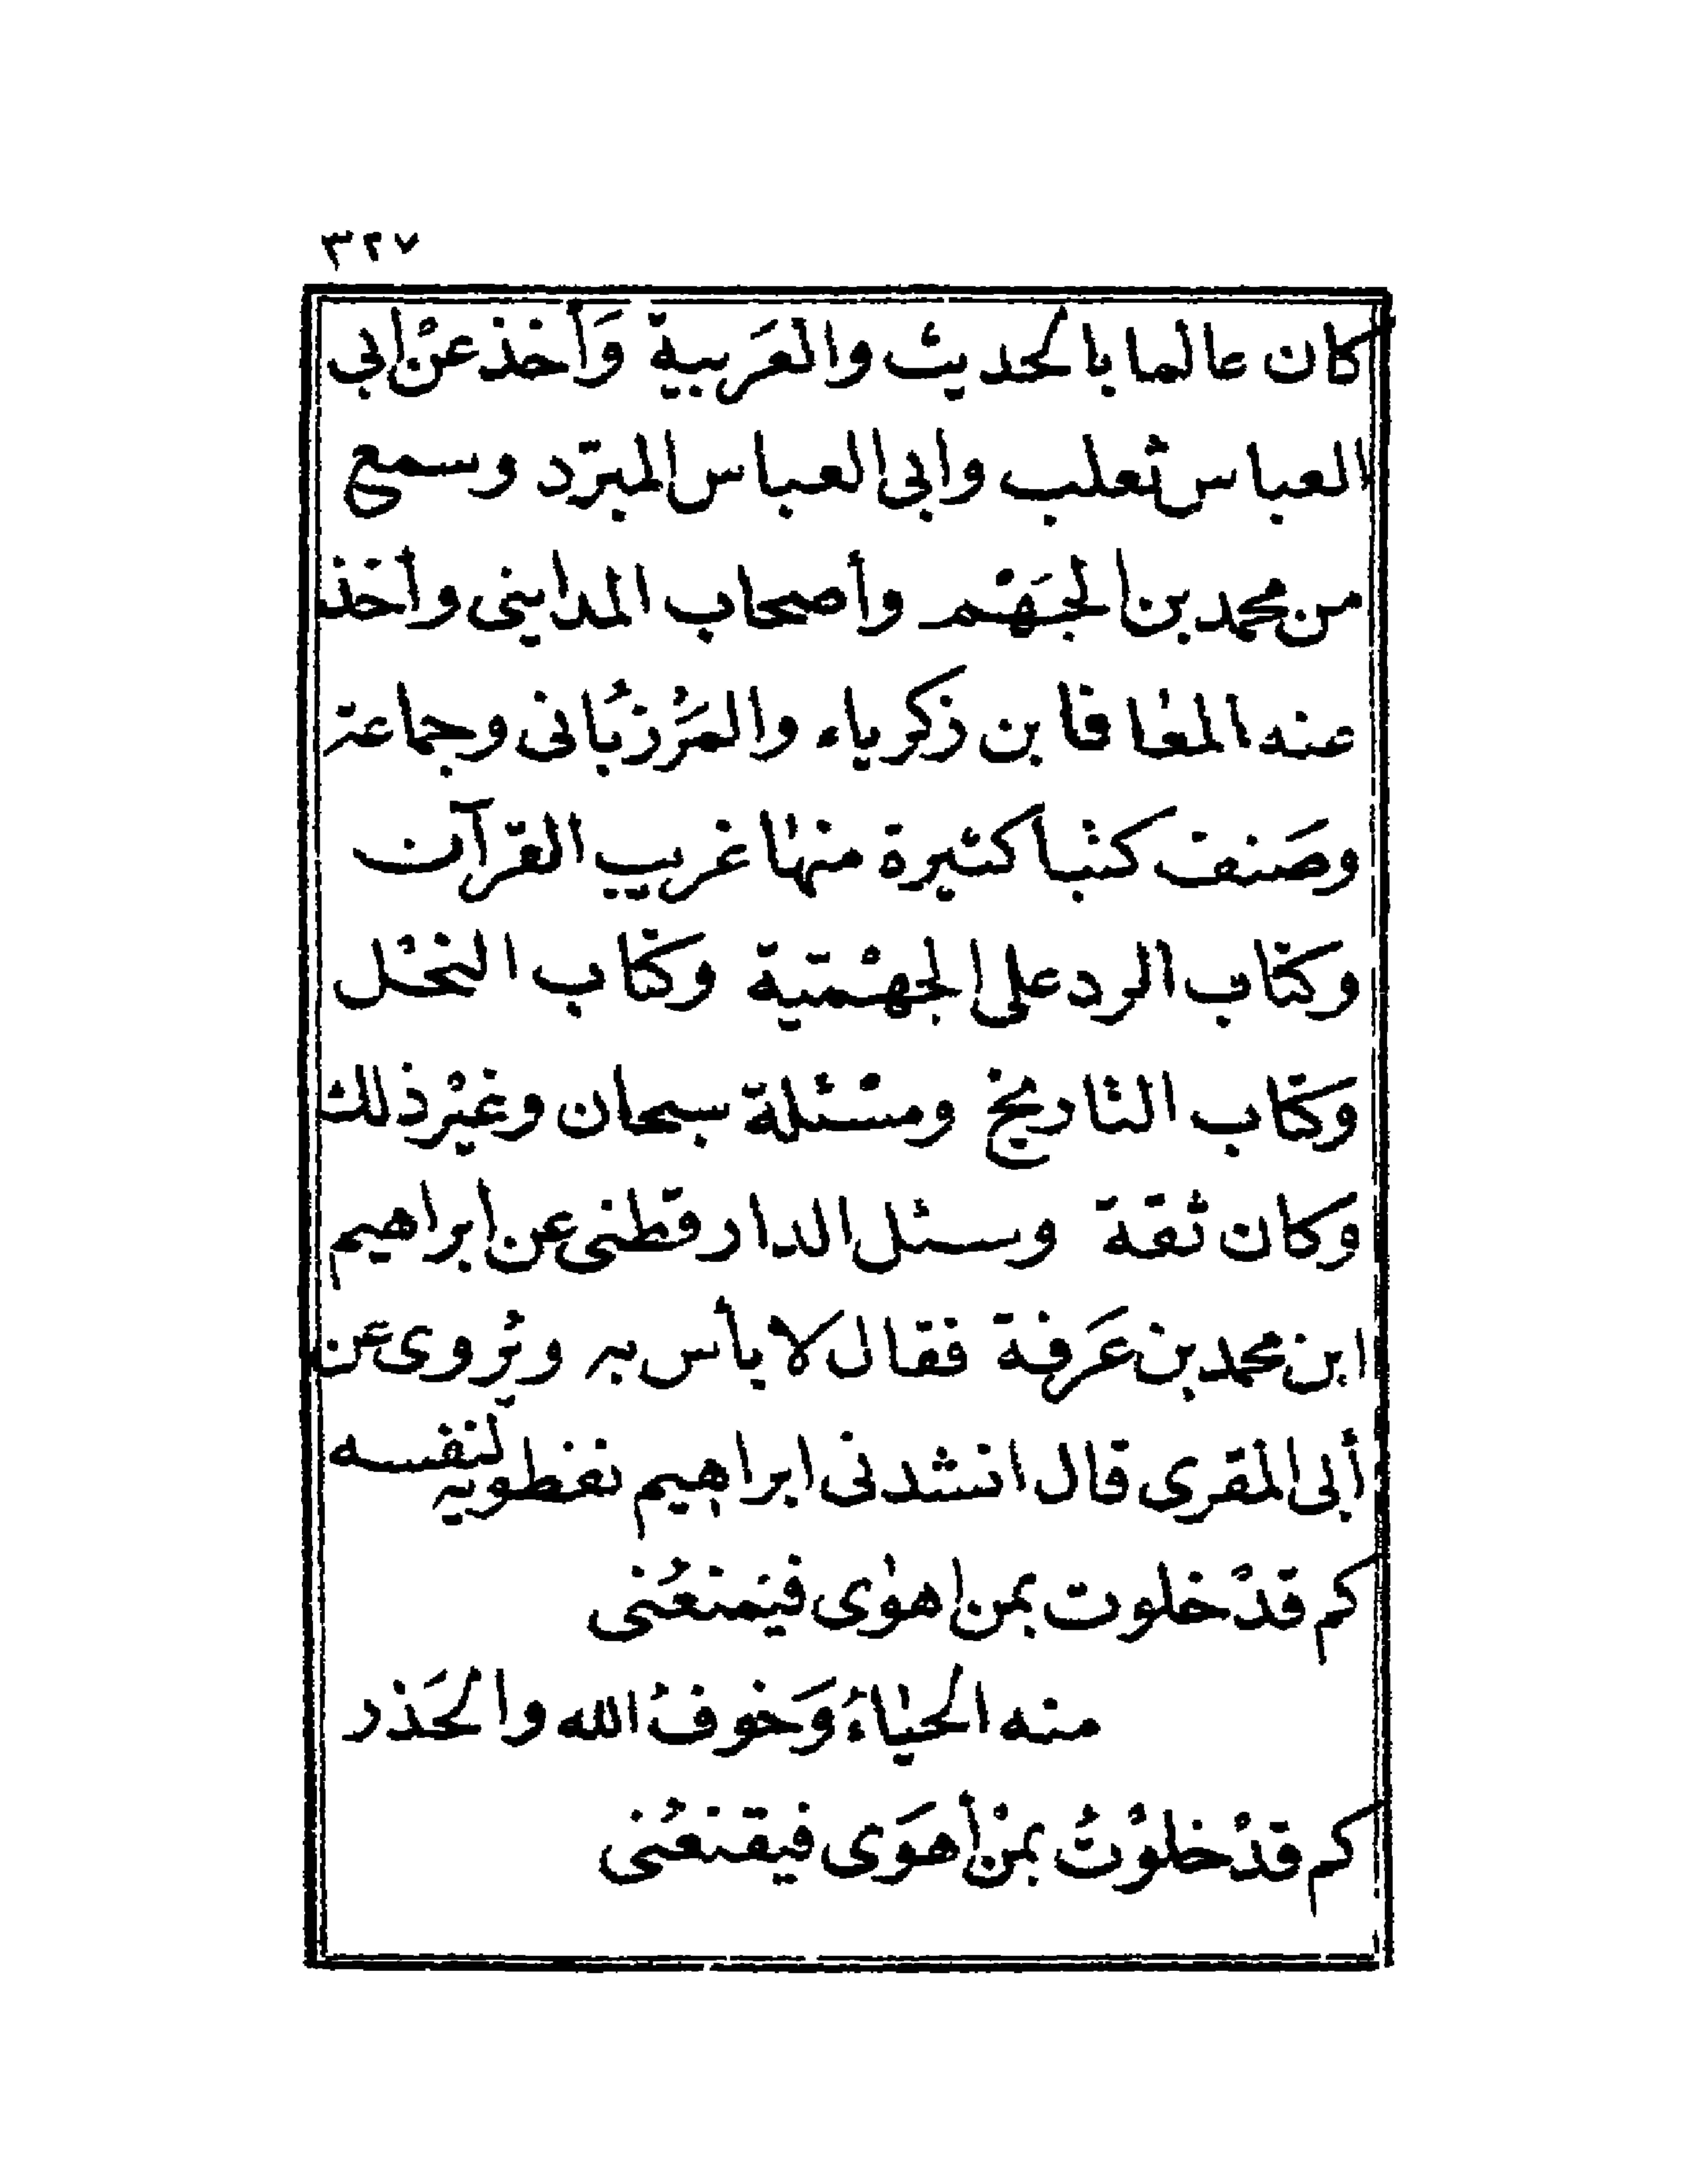 ٣٢٧
كان عالما بالحديث والعَربية وَأخذ عنْ ابي
العباس ثعلب وابى العباس المبرّد وسمع
من محمد بن الجَهْم وأصحاب المداينى وأخذ
عنه المعافا بن زكرياء والمَرْزُبانى وجماعة
وصَنف كتبا كثيرة منها غريب القرآن
وكتاب الرد على الجهْمية وكتاب النحْل
وكتاب التاريخ ومسْئلة سبحان وغيْر ذلك
وكان ثقة وسئل الدارقطنى عن ابراهيم
ابن محمد بن عَرفة فقال لا بأس به ويُروى عن
أبى المقرى قال انشدنى ابراهيم نفطويه لنفسه
كم قدْ خلوت بمن اهوى فيمنعُنى
منه الحياءُ وَخوفُ الله والحَذر
كم قدْ خلوْتُ بمنْ أهوَى فيقنعُنى